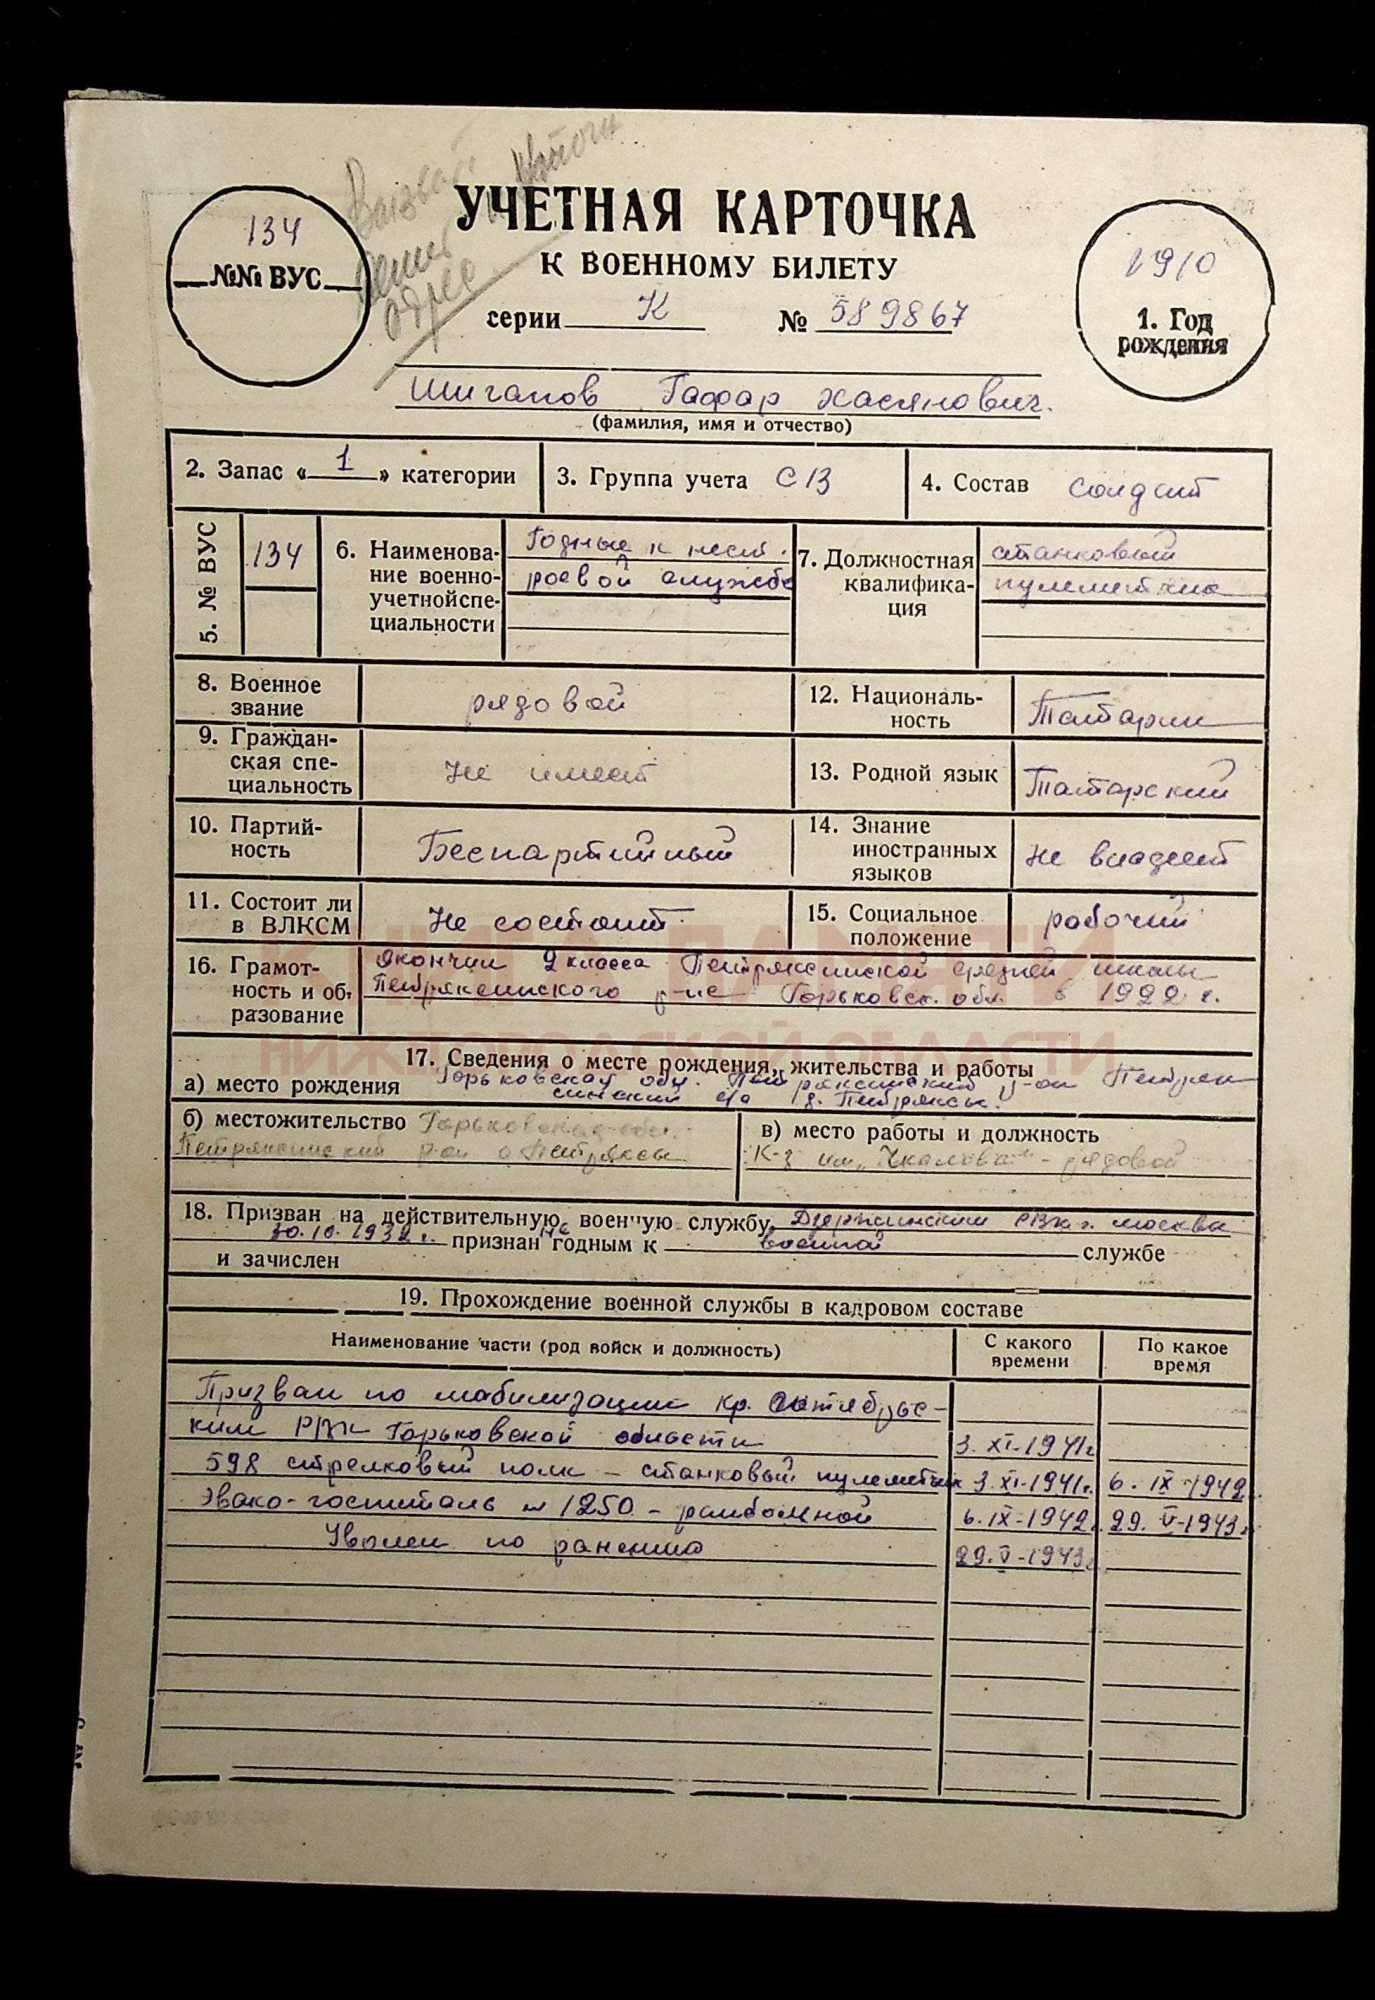 УЧЕТНАЯ КАРТОЧКА
К ВОЕННОМУ БИЛЕТУ
134
№№ ВУС
адрес
серии К № 589867
1910
1. Год
рождения
Шигапов Гафар Хасянович.
(фамилия, имя и отчество)
2. Запас « 1 » категории
3. Группа учета СВ
4. Состав солдат
5. № ВУС
134
6. Наименова-
ние военно-
учетнойспе-
циальности
Годные к нест.
роевой службе
7. Должностная
квалифика-
ция
станковый
пулеметчик
8. Военное
звание
рядовой
12. Националь-
ность
Татарин
9. Граждан-
ская спе-
циальность
Не имеет
13. Родной язык
Татарский
10. Партий-
ность
Беспартийный
14. Знание
иностранных
языков
Не владеет
11. Состоит ли
в ВЛКСМ
Не состоит
15. Социальное
положение
рабочий
16. Грамот-
ность и об-
разование
Окончил 2 класса Петряксинской средней школы
Петряксинского р-не Горьковск. обл. в 1922 г.
КНИГА ПАМЯТИ
НИЖЕГОРОДСКОЙ ОБЛАСТИ
17. Сведения о месте рождения, жительства и работы
а) место рождения Горьковская обл. Петряксинский р-он Петряк
синский с/с д. Петряксы.
б) местожительство Горьковская обл.
Петряксинский р-он с Петряксы
в) место работы и должность
К-з им. "Чкалова" - рядовой
18. Призван на действительную военную службу Дзержинским РВК г. Москва
30.10.1932 г. признан не годным к военной службе
и зачислен
19. Прохождение военной службы в кадровом составе
Наименование части (род войск и должность)
С какого
времени
По какое
время
Призван по мобилизации кр. Октябрьс-
ким РВК Горьковской области 3.XI-1941г
598 стрелковый полк - станковый пулеметчик 3.XI-1941г. 6.IX-1942
Эвако-госпиталь № 1250 - 6.IX-1942г. 29.V-1943г
Уволен по ранению 29.V-1943г